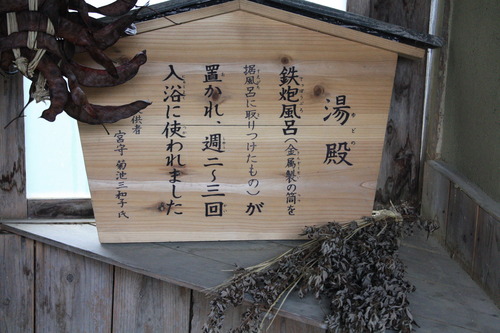 湯殿
鉄炮風呂(金属製の筒を
据風呂に取りつけたもの)が
置かれ 週二〜三回
入浴に使われました
供者
宮守 菊池三和子氏